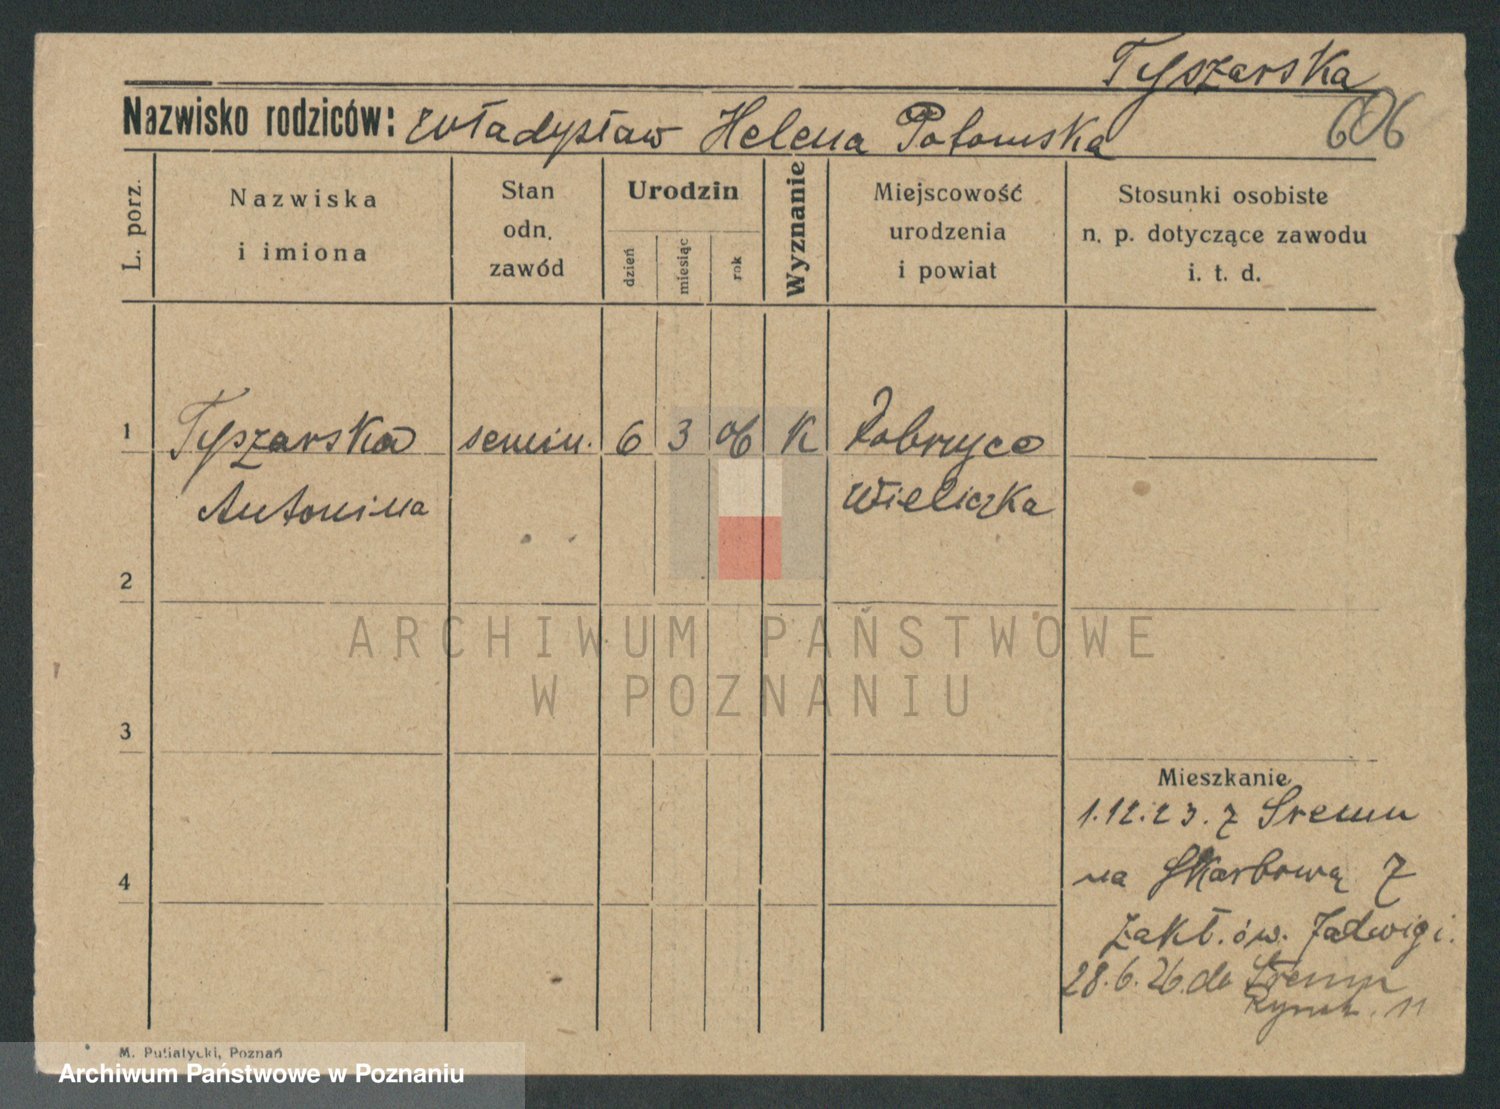 Tyszarska
606
Nazwisko rodziców: Władysław Helena Potomska
L. porz.
Nazwiska
i imiona
Stan
odn.
zawód
Urodzin
dzień
miesiąc
rok
Wyznanie
Miejscowość
urodzenia
i powiat
Stosunki osobiste
n. p. dotyczące zawodu
i. t. d.
1 Tyszarska semin. 6 3 06 K Dobrzyce
Antonina Wieliczka
2
3
4
Mieszkanie
1.12.23. z Śremu
na Skarbową 7
Zakł. św. Jadwigi.
28.6.26. do Śremu
Rynek 11
M. Putiatycki, Poznań
ARCHIWUM PAŃSTWOWE
W POZNANIU
Archiwum Państwowe w Poznaniu